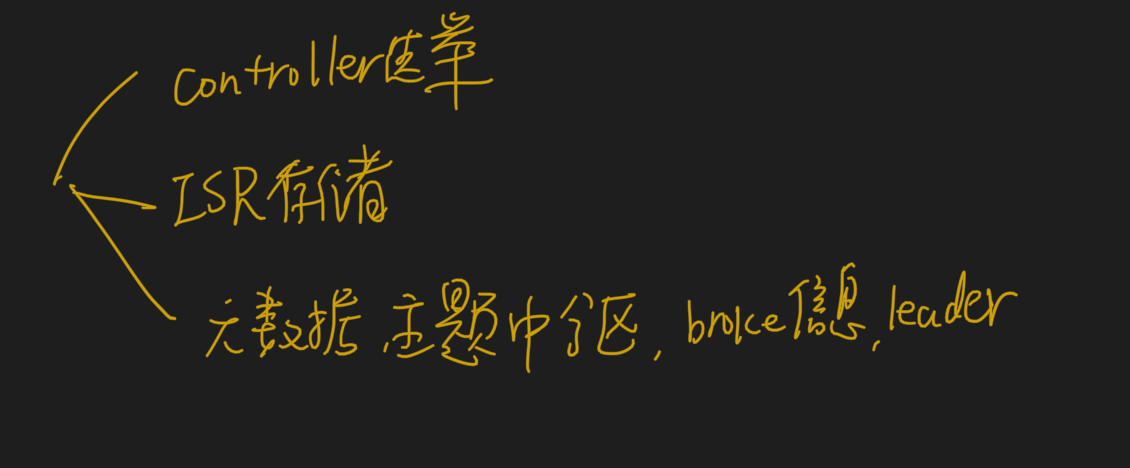 controller选举
ISR存储
元数据,主题中分区,broke信息,leader